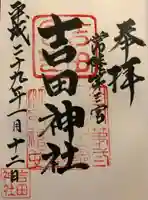 奉拝
常陸第三宮
吉田神社
平成二十九年一月十二日
吉田神社